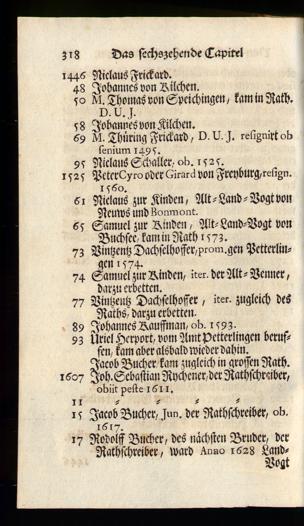 318 Das sechszehende Capitel
1446 Niclaus Frickard.
48 Johannes von Kilchen.
50 M. Thomas von Speichingen, kam in Rath.
D. U. J.
58 Johannes von Kilchen.
69 M. Thüring Frickard, D. U. J. resignirt ob
senium 1495.
95 Niclaus Schaller, ob. 1525.
1525 Peter Cyro oder Girard von Freyburg, resign.
1560.
61 Niclaus zur Kinden, Alt-Land-Vogt von
Neuws und Bonmont.
65 Samuel zur Kinden, Alt-Land-Vogt von
Buchsee, kam in Rath 1573.
73 Vintzentz Dachselhoffer, prom. gen Petterlin-
gen 1574.
74 Samuel zur Kinden, iter. der Alt-Venner,
darzu erbetten.
77 Vintzentz Dachselhoffer, iter. zugleich des
Raths, darzu erbetten.
89 Johannes Kauffman, ob. 1593.
93 Uriel Herport, vom Amt Petterlingen beruf-
fen, kam aber alsbald wieder dahin.
Jacob Bucher kam zugleich in grossen Rath.
1607 Joh. Sebastian Rychener, der Rathschreiber,
obiit peste 1611.
11 " " " "
15 Jacob Bucher, Jun. der Rathschreiber, ob.
1617.
17 Rodolff Bucher, des nächsten Bruder, der
Rathschreiber, ward Anno 1628 Land-
Vogt